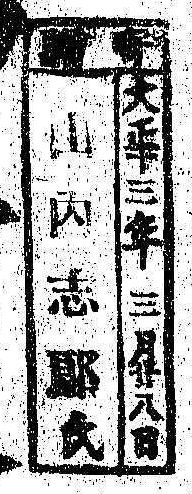 大正三年三月廿八日
山内志郎氏